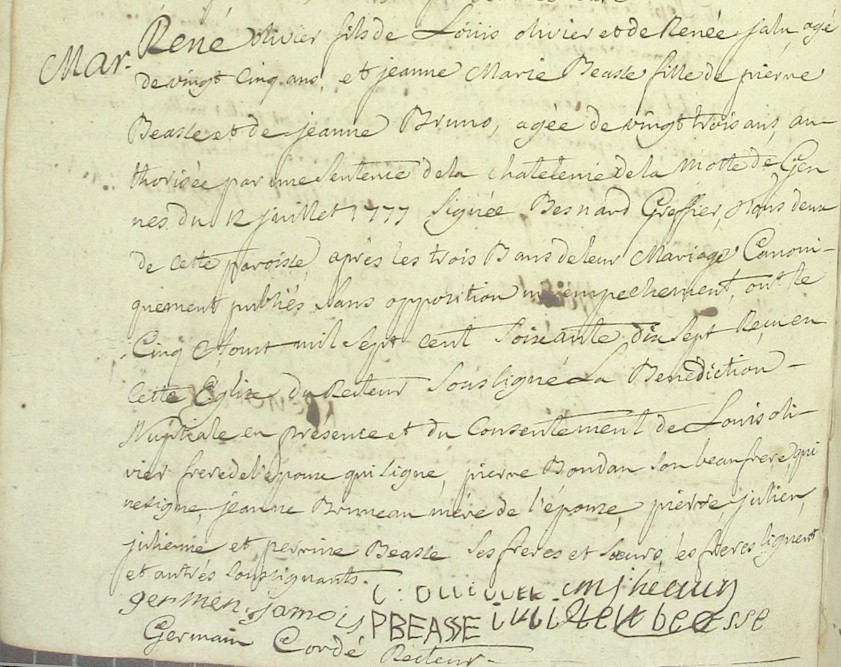 Mar. René olivier fils de Loüis olivier et de Renée jalu, agé
de vingt Cinq ans, et jeanne Marie Beasse fille de pierre
Beasse et de jeanne Bruno, agée de vingt trois ans, au-
thorisée par une Sentence de la chatelenie de la Motte de Gen
nes, du 12 juillet 1777 Signée Besnard Greffier, tous deux
de cette paroisse, après les trois Bans de leur Mariage Canoni-
quement publiés Sans opposition ni empechement, ont le
Cinq Aout mil sept cent Soixante dix sept Reçu en
cette Eglise du Recteur Soussigné La Benediction -
Nuptiale en présence et du Consentement de Louis oli-
vier frere de l'epoux qui signe, pierre Bondan Son beaufrere, qui
ne signe, jeanne Bruneau mère de l'épouse, pierre julien,
julienne et perrine Beasse Ses freres et Sœurs, les freres signent
et autres Soussignants.
L: OLLIVIER
germen jamois PBEASSE beasse
Germain Cordé Recteur -